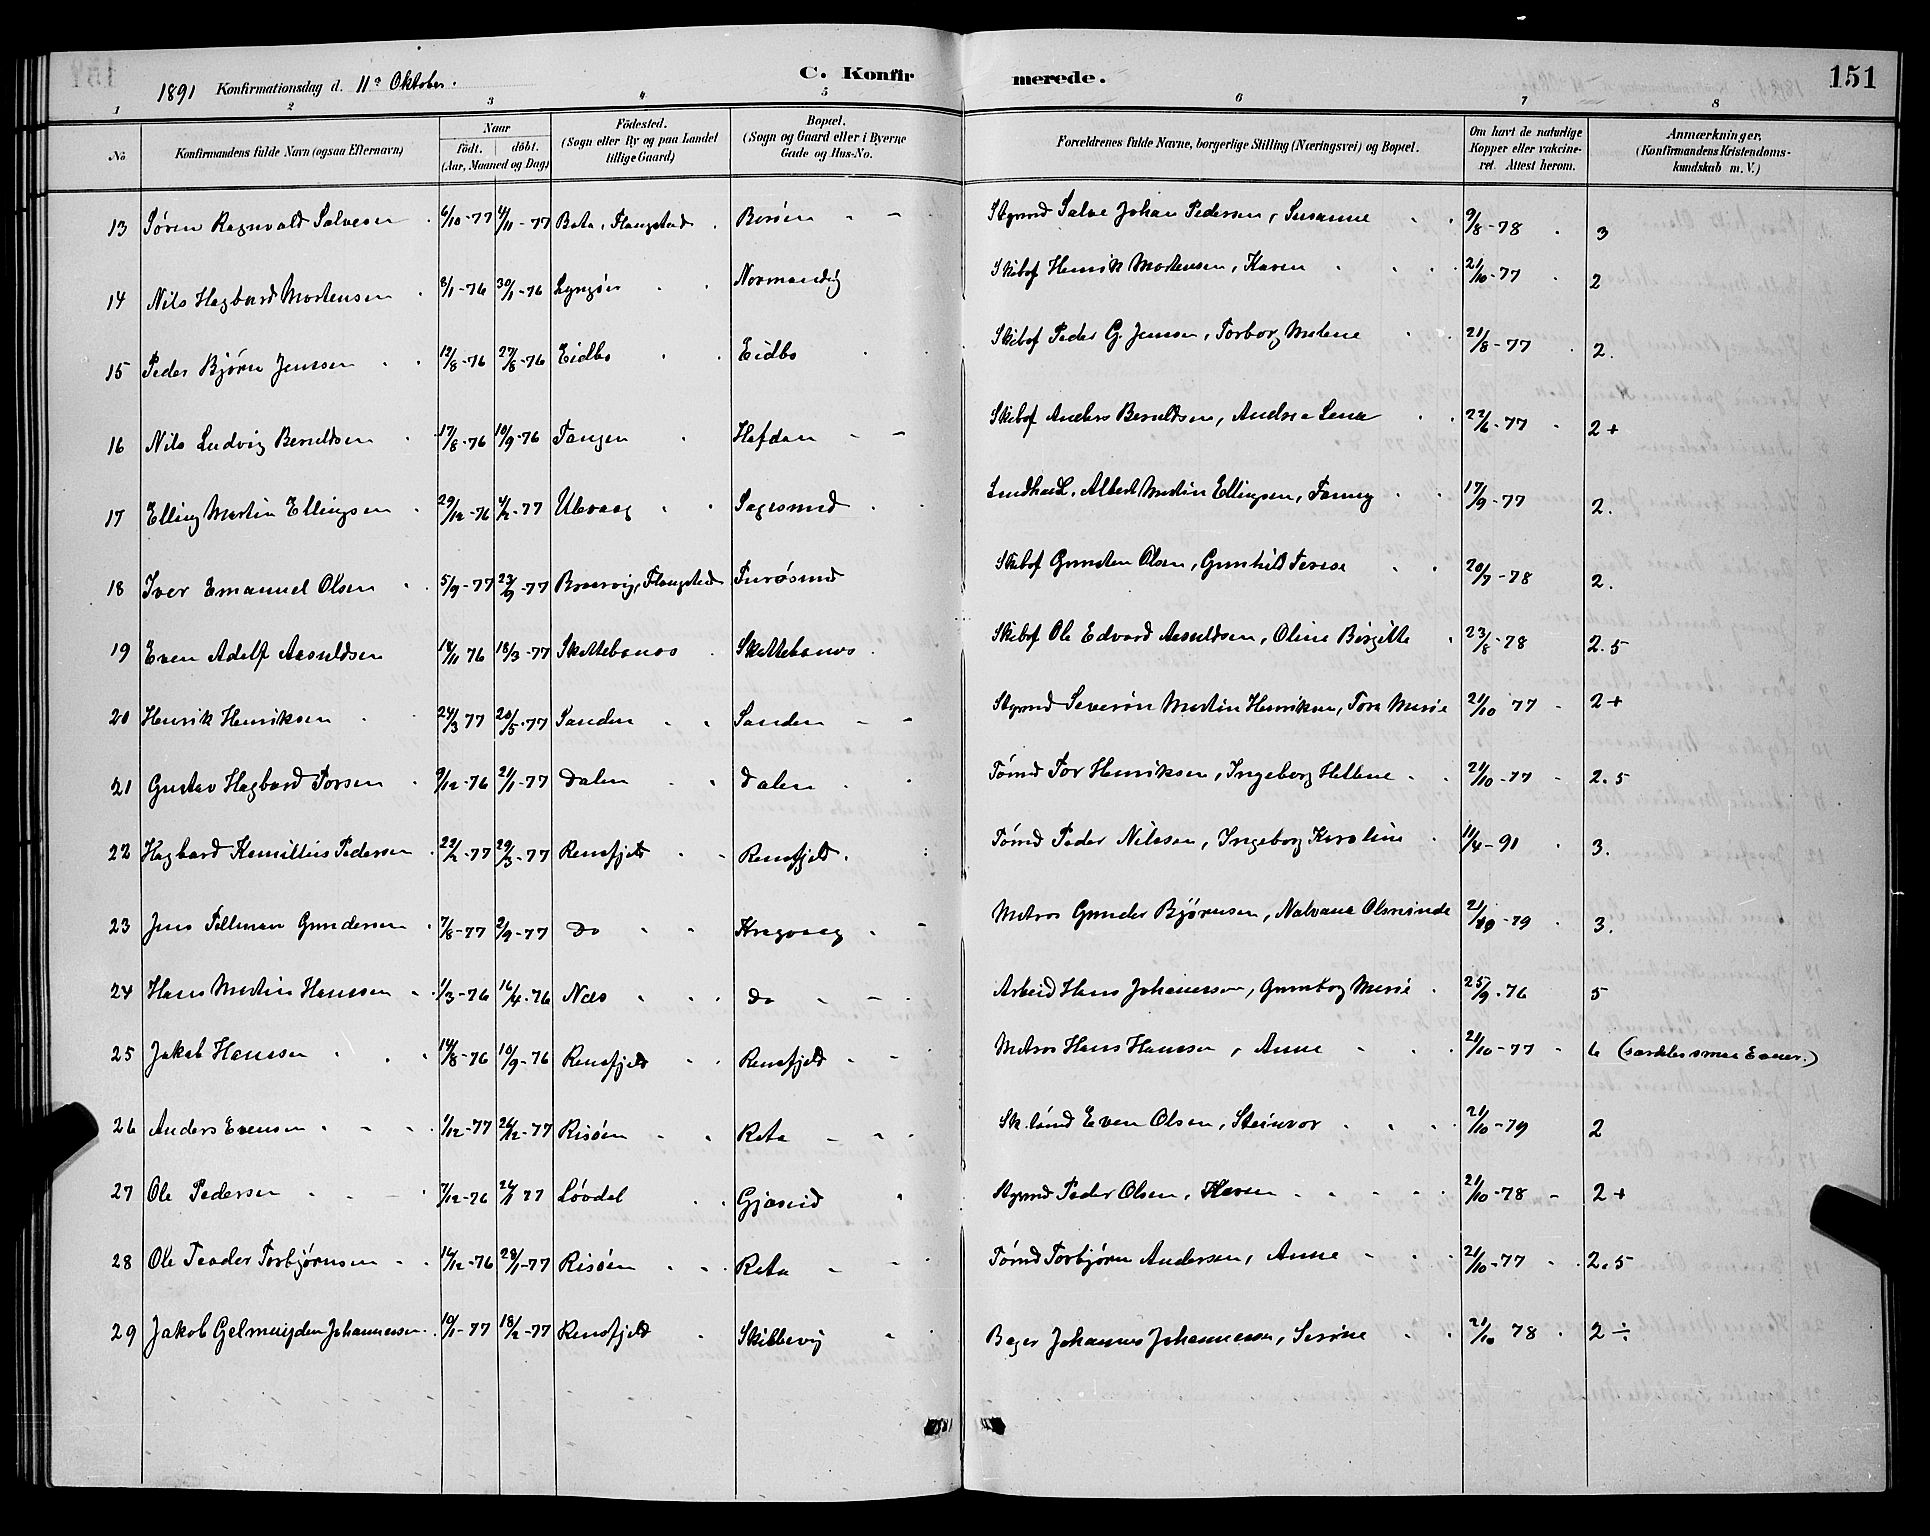 C. Konfirmerede.
151
1891 Konfirmationsdag d. 11ᵗᵉ Oktober.
1 2 3 4 5 6 7 8
No
Konfirmandens fulde Navn (ogsaa Efternavn)
Naar
født. døbt.
(Aar, Maaned og Dag)
Födested.
(Sogn eller By og paa Landet
tillige Gaard)
Bopæl.
(Sogn og Gaard eller i Byerne
Gade og Hus-No.
Forældrenes fulde Navne, borgerlige Stilling (Næringsvei) og Bopæl.
Om havt de naturlige
Kopper eller vakcine-
ret. Attest herom.
Anmærkninger.
(Konfirmandens Kristendoms-
kundskab m. V.)
13 Søren Ragnvald Salvesen 6/10-77 4/11-77 Bota, Flangstad Borøen Stymd Salve Johan Pedersen, Susanne 9/8-78 3
14 Nils Hagbard Mortensen 8/1-76 30/1-76 Lyngør Normandvig Skibsf Henrik Mortensen, Karen 21/10-77 2
15 Peder Bjørn Jenssen 12/8-76 27/8-76 Eidbo Eidbo Skibsf Peder G. Jenssen, Torborg Malene 21/8-77 2.
16 Nils Ludvig Beruldsen 17/8-76 10/9-76 Tangen Hafdan Skibsf Anders Beruldsen, Andrea Lena 22/6-77 2+
17 Elling Martin Ellingsen 29/12-76 4/2-77 Ulevaag Sagesund Albert Martin Ellingsen, Fanny 17/9-77 2.
18 Iver Emanuel Olsen 5/9-77 23/9-77 Braarvig, Flangstad Furøsund Skibsf Gunsten Olsen, Gunhild Terese 20/7-78 2.
19 Even Adolf Aasuldsen 14/11 76 18/3-77 Skottebanos Skottebanos Skibsf Ole Edvard Aasuldsen, Oline Birgitte 23/8-78 2.5
20 Henrik Henriksen 24/3 77 20/5-77 Sanden Sanden Stymd Severin Martin Henriksen, Tora Marie 21/10 77 2+
21 Gustav Hagbard Torsen 9/12-76 21/1-77 Dalen Dalen Tømd Tor Henriksen, Ingeborg Hellene 21/10-77 2.5
22 Hagbard Kamillius Pedersen 22/2-77 29/3-77 Rensfjeld Rensfjeld. Tømd Peder Nilssen, Ingeborg Karoline 11/4-91 3.
23 Jens Tellman Gundersen 7/8-77 2/9-77 Do Kragvaag Matros Gunder Bjørnsen, Nalvana Olsminde 21/10-79 3.
24 Hans Martin Hanssen 1/3-76 16/4-76 Næs Do Arbeid Hans Johanesson, Gunborg Marie 25/9-76 5
25 Jakob Hanssen 14/8-76 10/9-76 Rensfjeld Rensfjeld Matros Hans Hanssen, Anne 21/10-77 6 (særdeles smaa Evner.)
26 Anders Evensen 1/12-77 26/12-77 Risøen Rota Sk.tømd Even Olsen, Steinvor 21/10-79 2
27 Ole Pedersen 7/12-76 26/1 77 Løvdal Gjæsvid Stymd Peder Olsen, Karen 21/10-78 2+
28 Ole Teoder Torbjørnsen 14/12-76 28/1-77 Risøen Rota Tømd Torbjørn Andersen, Anne 21/10-77 2.5
29 Jakob Gelmuyden Johannessen 10/1-77 18/2-77 Rensfjeld Skibbevig Bager Johannes Johannessen, Serine 21/10 78 2÷